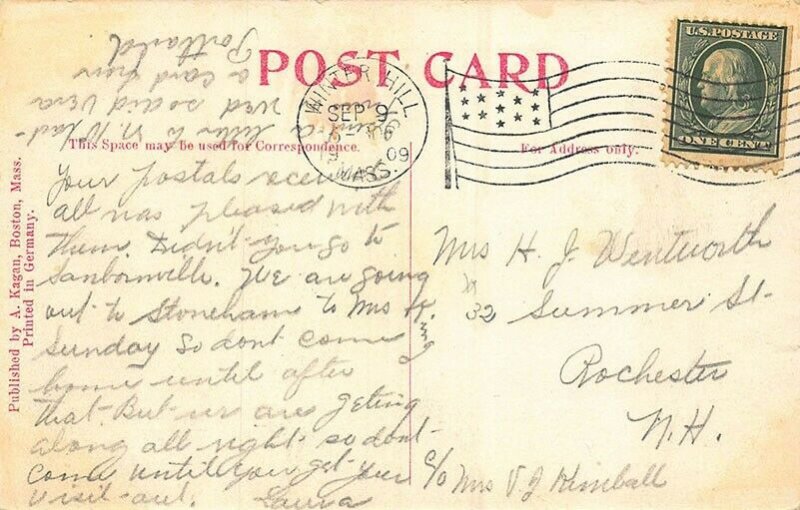 POST CARD
U.S. POSTAGE
ONE CENT
WINTER HILL
SEP 9
1909
MASS.
This Space may be used for Correspondence.
For Address only.
Published by A. Kagan, Boston, Mass.
Printed in Germany.
Your postals
all was pleased with
them. Didn't you go to
Sanbornville. We are going
out to Stoneham to Mrs
Sunday so dont come
home until after
that. But we are geting
along all right so dont
come until you get your
visit out. Laura
a letter to
Wed so did Vera
a card from
Portland
Mrs H. J. Wentworth
32 Summer St
Rochester
N.H.
C/o Mrs V J Kimball